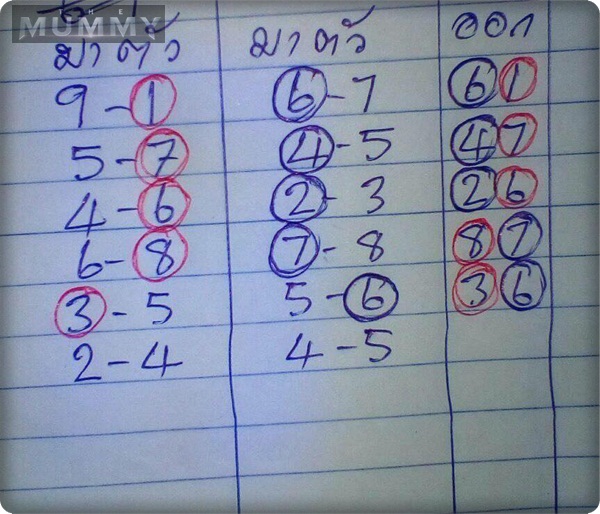 THE
MUMMY
มาตัว มาตัว ออก
9-1 6-7 61
5-7 4-5 47
4-6 2-3 26
6-8 7-8 87
3-5 5-6 36
2-4 4-5